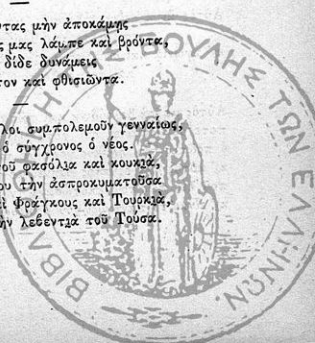 ντας μὴν ἀποκάμῃς
ς μας λάμπε καὶ βρόντα,
δίδε δυνάμεις
τον καὶ φθισιῶντα.
λοι συμπολεμοῦν γενναίως,
ὁ σύγχρονος ὁ νέος.
νοῦ φασόλια καὶ κουκιὰ,
ου τὴν ἀσπροκυματοῦσα
ὶ Φράγκους καὶ Τουρκιὰ,
ὴν λεβεντιὰ τοῦ Τούσα.
ΒΙΒΛΙΟΘΗΚΗ ΤΗΣ ΒΟΥΛΗΣ ΤΩΝ ΕΛΛΗΝΩΝ